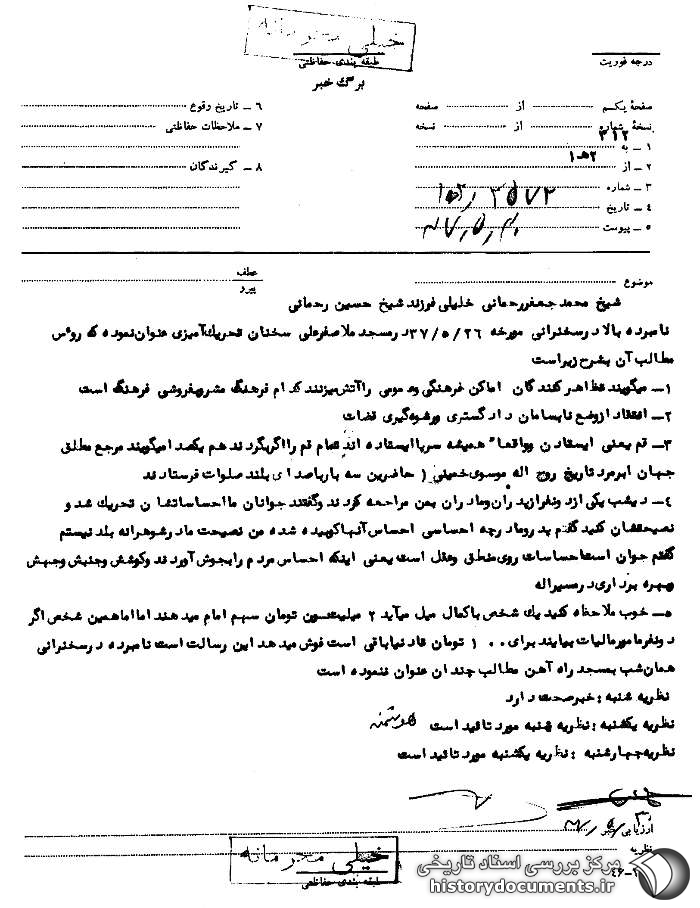 خیلی محرمانه
طبقه بندی حفاظتی
درجه فوریت
برگ خبر
صفحهٔ یکم از صفحه
نسخهٔ شماره از نسخه
۱ ـ به ۳۱۲
۲ ـ از ۲هـ۱
۳ ـ شماره
۴ ـ تاریخ
۵ ـ پیوست
۶ ـ تاریخ وقوع
۷ ـ ملاحظات حفاظتی
۸ ـ گیرندگان
موضوع
عطف
پیرو
شیخ محمد جعفر رحمانی خلیلی فرزند شیخ حسین رحمانی
نامبرده بالا در سخنرانی مورخه ۳۷/۵/۲۶ در مسجد ملا صفرعلی سخنان تحریک آمیزی عنوان نموده که روس
مطالب آن بشرح زیر است
۱ـ میگویند تظاهر کنندگان اماکن فرهنگی و عمومی را آتش میزنند کدام فرهنگ مشروبفروشی فرهنگ است
۲ـ انتقاد از وضع نابسامان دادگستری و رشوه گیری قضات
۳ـ قم یعنی ایستادن و واقعا" همیشه سرپا ایستاده اند تمام قم را اگر بگردند هم یکصدا میگویند مرجع مطلق
جهان ابرمرد تاریخ روح اله موسوی خمینی ( حاضرین سه بار با صدای بلند صلوات فرستادند
۴ـ دیشب یکی از دو نفر از پدران و مادران بمن مراجعه کردند و گفتند جوانان ما احساساتشان تحریک شد و
نصیحتشان کنید گفتم پدر و مادر چه احساسی احساس آنها کوبیده شده من نصیحت مادر شوهرانه بلد نیستم
گفتم جوان است احساسات روی منطق و عقل است یعنی اینکه احساس مردم را بجوش آوردند و کوشش و جنبش و جهش
بهره برداری در مسیر اله
۵ـ خوب ملاحظه کنید یک شخص با کمال میل میآید ۲ میلیون تومان سهم امام میدهند اما همین شخص اگر
دو نفر مامور مالیات بیایند برای ۱۰۰ تومان قادنیاباقی است فوش میدهد این رسالت است نامبرده در سخنرانی
همان شب بمسجد راه آهن مطالب چندان عنوان ننموده است
نظریه شنبه : خبر صحت دارد
نظریه یکشنبه : نظریه شنبه مورد تائید است
نظریه چهارشنبه : نظریه یکشنبه مورد تائید است
ارزیابی خبر
نظریه
خیلی محرمانه
طبقه بندی حفاظتی
مرکز بررسی اسناد تاریخی
historydocuments.ir